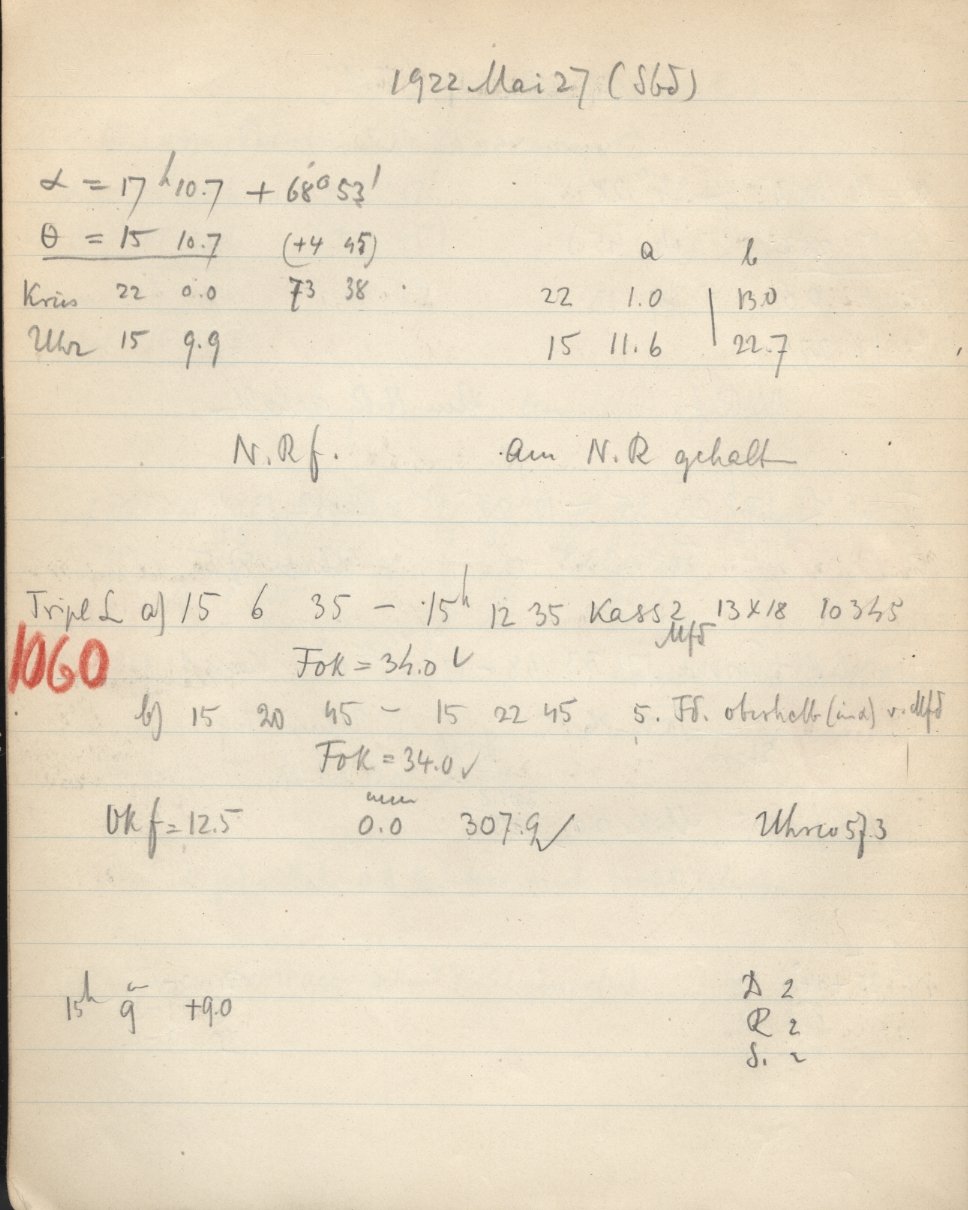 1922 Mai 27 (Sbd)
α = 17h 10.7 + 68° 53'
θ = 15 10.7 (+4 45)
a b
Kreis 22 0.0 73 38
22 1.0 | 13.0
Uhr 15 9.9
15 11.6 | 22.7
N.R f. Am N.R gehalt
Tripl L a) 15 6 35 – 15h 12 35 Kass 2 13x18 10345
Mfd
1060
Fok = 34.0 ✓
b) 15 20 45 – 15 22 45 5. Fd. oberhalb (ind) v. Mfd
Fok = 34.0 ✓
Okf = 12.5 0.0 307.9 ✓ Uhrco 57.3
15h 9m +9.0
D 2
R 2
S. 2